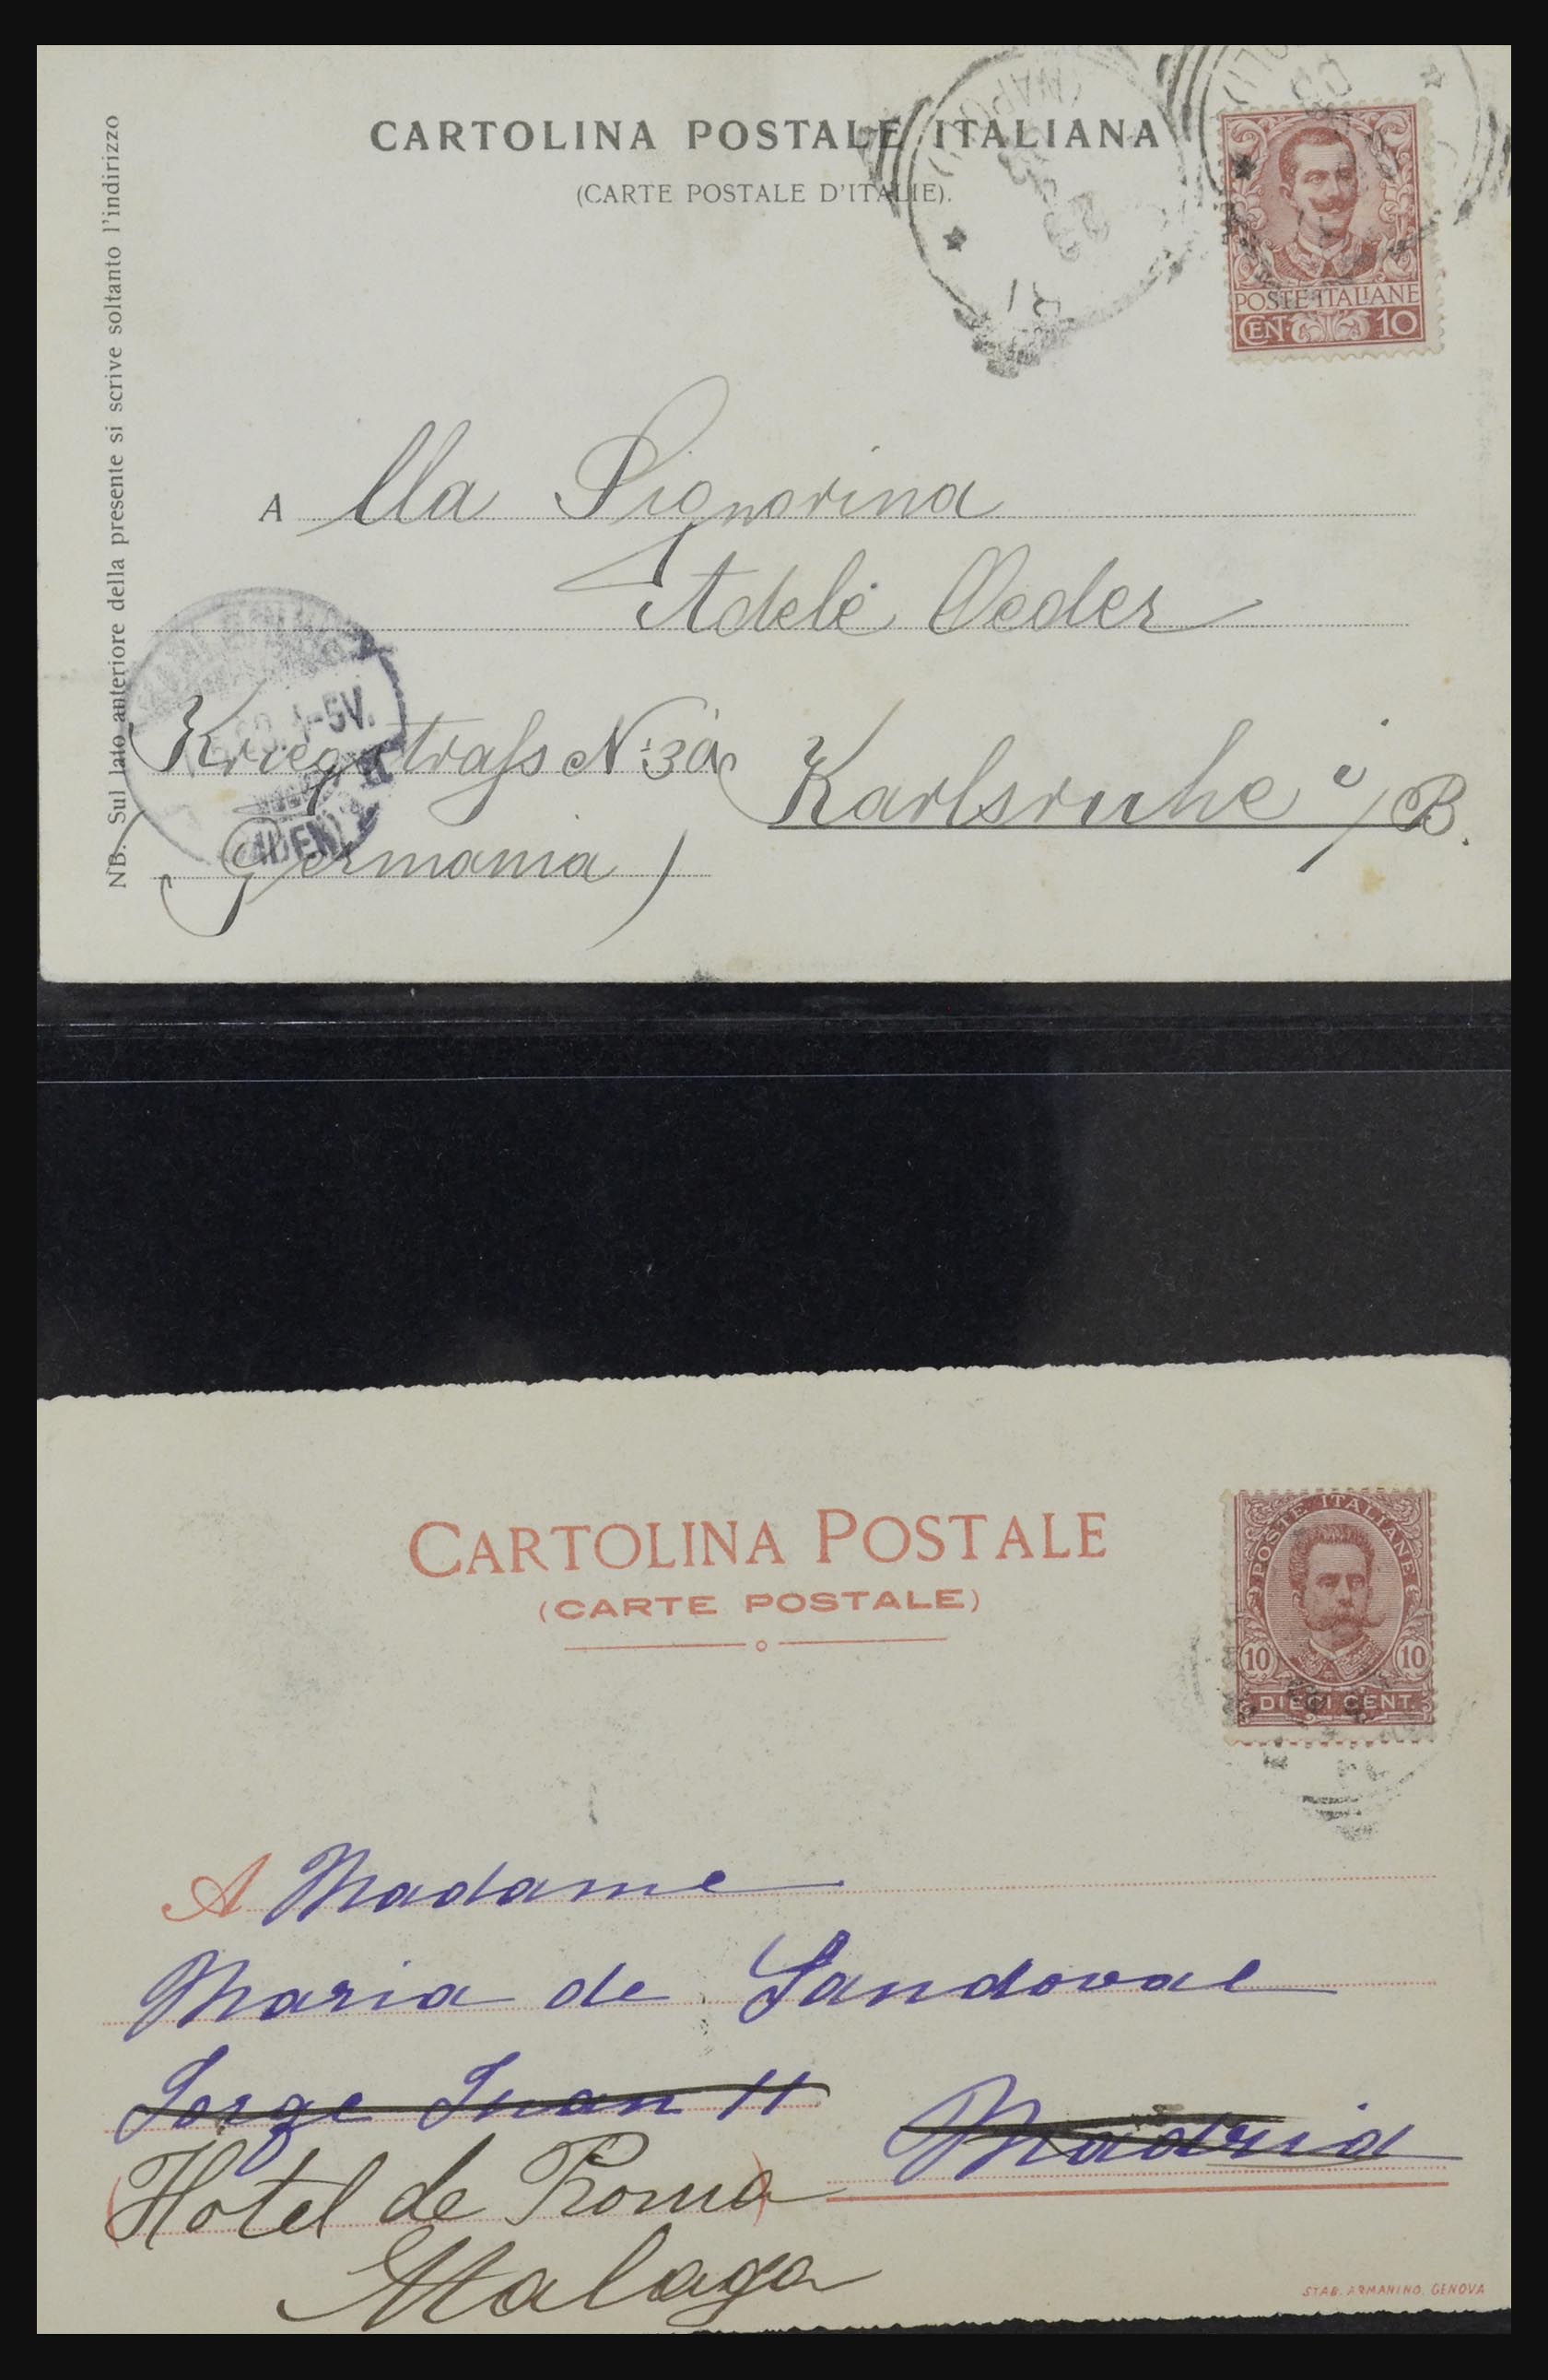 CARTOLINA POSTALE ITALIANA
(CARTE POSTALE D'ITALIE).
NB. Sul lato anteriore della presente si scrive soltanto l'indirizzo
(NAPOLI)
POSTE ITALIANE
CEN. 10
A lla Signorina
Adele Oeder
4-5V.
Kriegstrass N: 30a Karlsruhe i/B.
(BADEN)
(Germania)
CARTOLINA POSTALE
(CARTE POSTALE)
POSTE ITALIANE
10 10
DIECI CENT.
A Madame
Maria de Sandoval
Jorge Juan 11 Madrid
Hotel de Roma
Malaga
STAB. ARMANINO. GENOVA